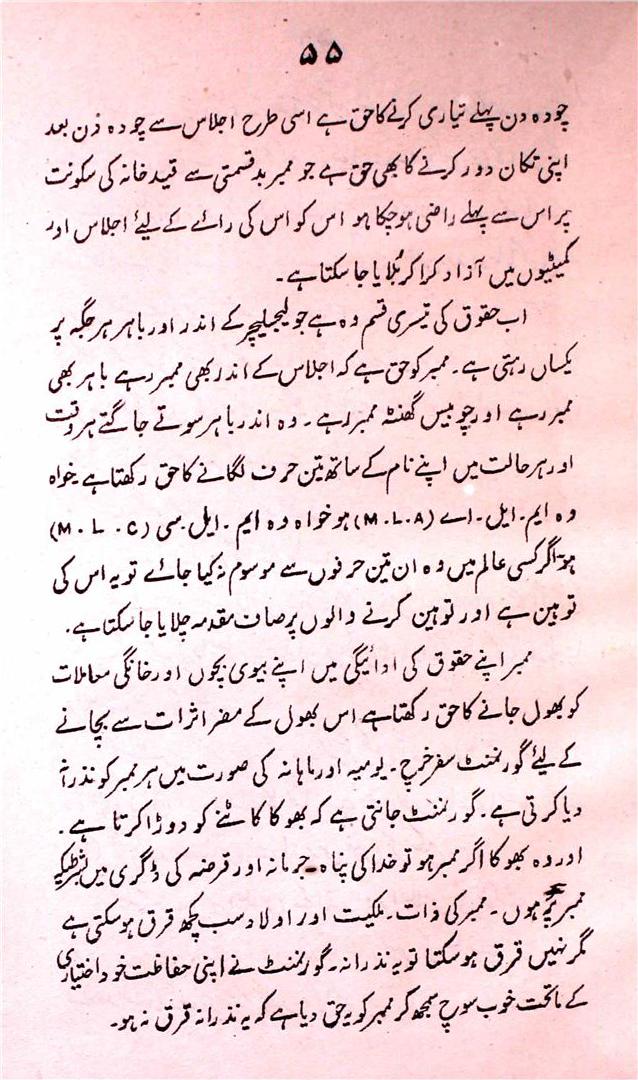 ۵۵
چودہ دن پہلے تیاری کرنے کا حق ہے اسی طرح اجلاس سے چودہ دن بعد
اپنی تکان دور کرنے کا بھی حق ہے جو ممبر بدقسمتی سے قید خانہ کی سکونت
پر اس سے پہلے راضی ہوچکا ہو اس کو اس کی رائے کے لئے اجلاس اور
کمیٹیوں میں آزاد کرا کر بُلایا جا سکتا ہے۔
اب حقوق کی تیسری قسم وہ ہے جو لیجیلیچر کے اندر اور باہر ہر جگہ پر
یکساں رہتی ہے۔ ممبر کو حق ہے کہ اجلاس کے اندر بھی ممبر رہے باہر بھی
ممبر رہے اور چوبیس گھنٹہ ممبر رہے۔ وہ اندر باہر سوتے جاگتے ہر وقت
اور ہر حالت میں اپنے نام کے ساتھ تین حرف لگانے کا حق رکھتا ہے خواہ
وہ ایم۔ایل۔اے (M.L.A) ہو خواہ وہ ایم۔ایل۔سی (M.L.C)
ہو۔ اگر کسی عالم میں وہ ان تین حرفوں سے موسوم نہ کیا جائے تو یہ اس کی
توہین ہے اور توہین کرنے والوں پر صاف مقدمہ چلایا جا سکتا ہے۔
ممبر اپنے حقوق کی ادائیگی میں اپنے بیوی بچوں اور خانگی معاملات
کو بھول جانے کا حق رکھتا ہے اس بھول کے مضر اثرات سے بچانے
کے لئے گورنمنٹ سفر خرچ۔ یومیہ اور ماہانہ کی صورت میں ہر ممبر کو نذرانہ
دیا کرتی ہے۔ گورنمنٹ جانتی ہے کہ بھوکا کاٹنے کو دوڑا کرتا ہے۔
اور وہ بھوکا اگر ممبر ہو تو خدا کی پناہ۔ جرمانہ اور قرضہ کی ڈگری میں بشرطیکہ
ممبر پر ہوں۔ ممبر کی ذات۔ ملکیت اور اولاد سب کچھ قرق ہوسکتی ہے
مگر نہیں قرق ہوسکتا تو یہ نذرانہ۔ گورنمنٹ نے اپنی حفاظت خود اختیاری
کے ماتحت خوب سوچ سمجھ کر ممبر کو یہ حق دیا ہے کہ یہ نذرانہ قرق نہ ہو۔